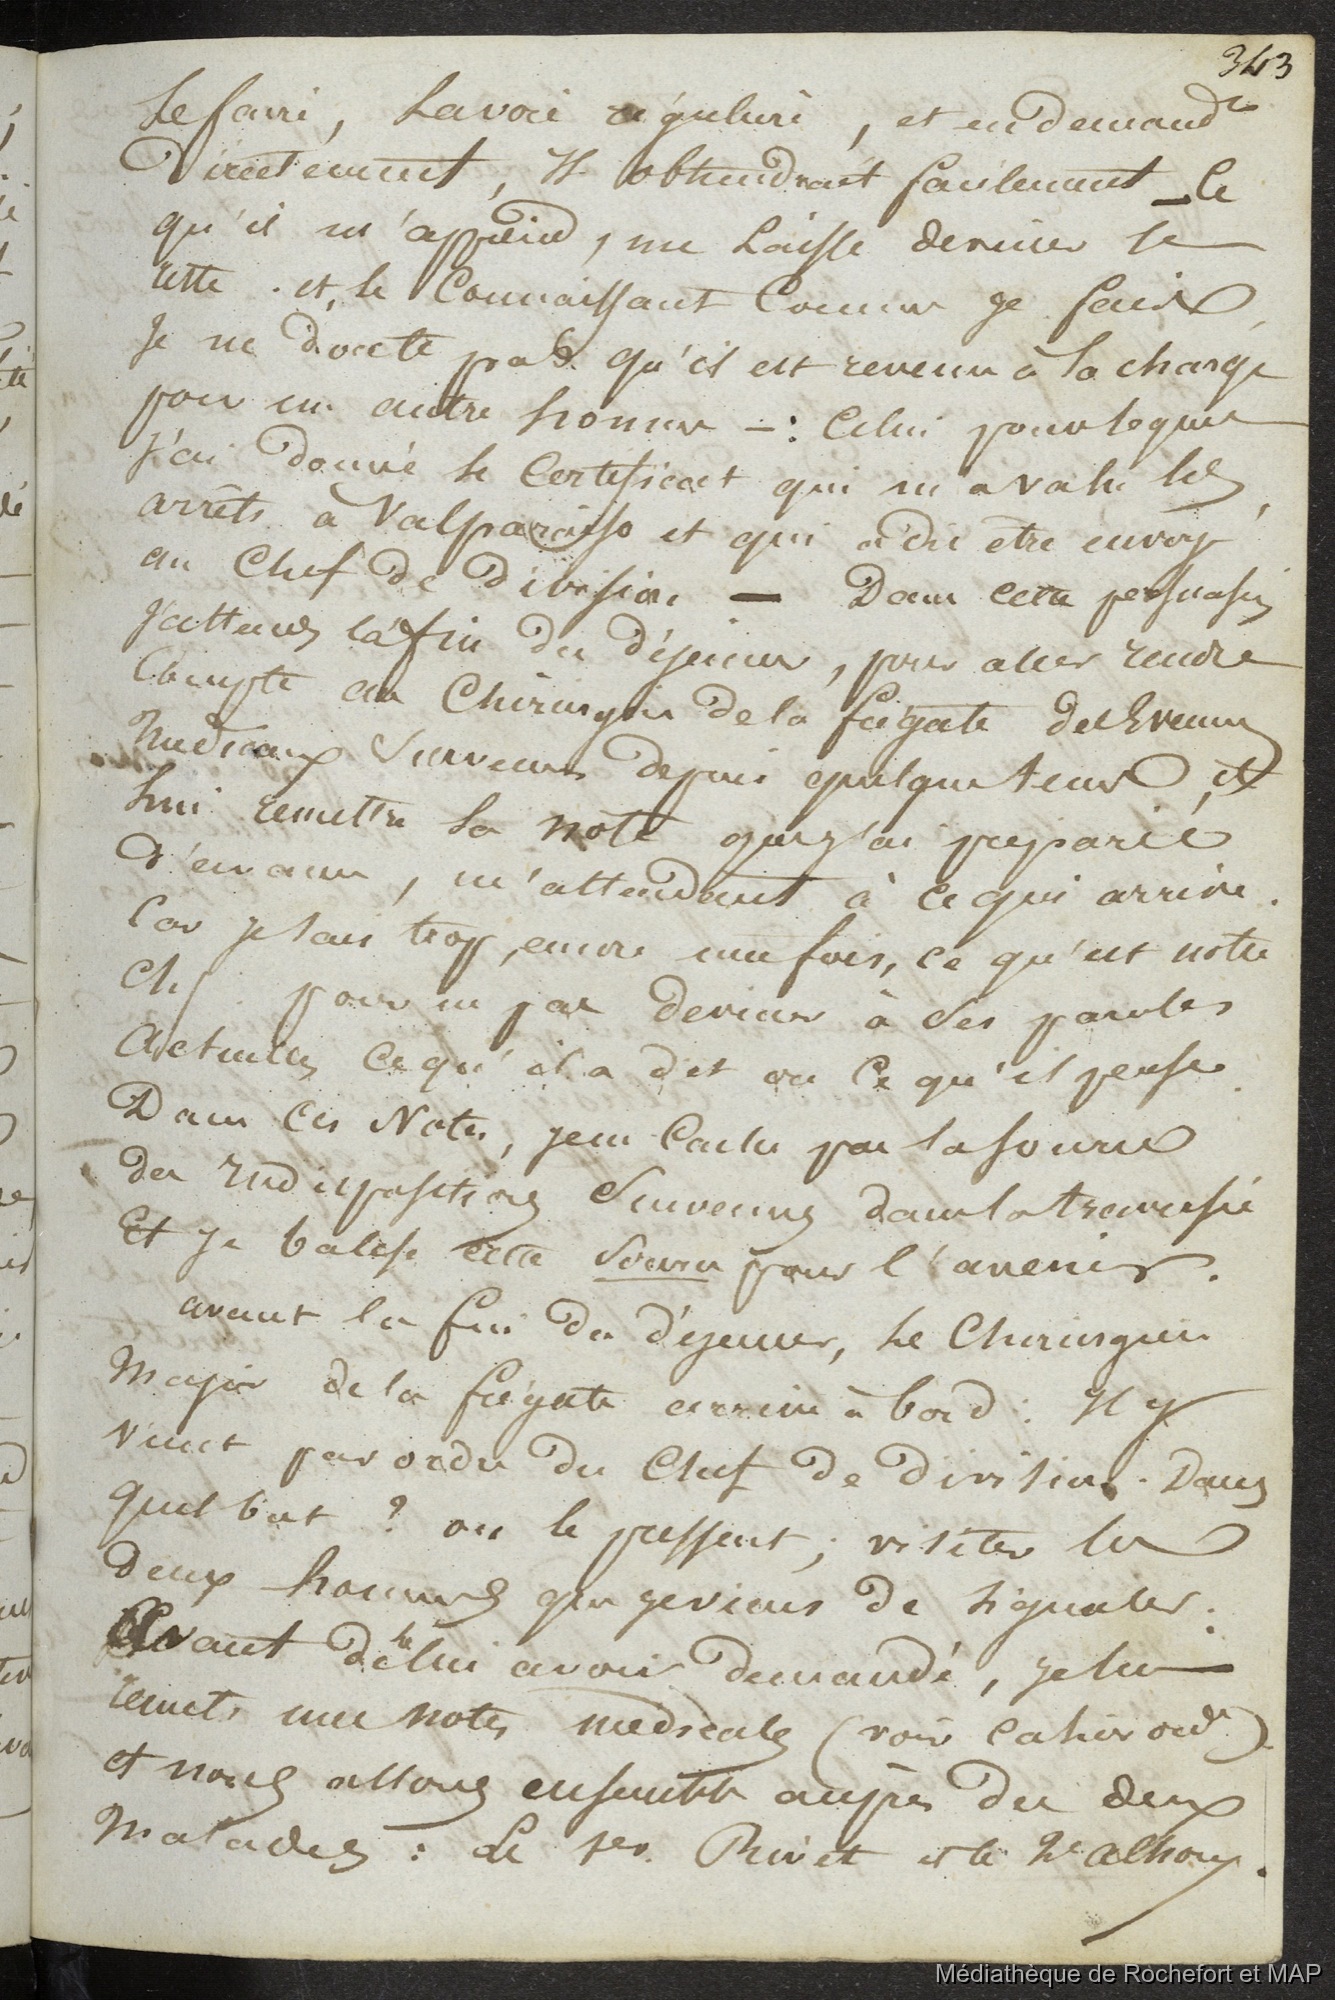 343
le faire, la voie régulière, et en demandt
Directement, Il obtiendrait facilement — Ce
qu'il m'apprend, me laisse deviner le
reste. et, le Connaissant Comme je fais,
Je ne doute pas qu'il est revenu à la charge
pour un autre homme — : Celui pour lequel
j'ai donné le Certificat qui m'a valu les
arrêts à Valparaiso et qui a dû être envoyé
au Chef de Division — Dans cette persuasion
j'attends la fin du déjeuner, pour aller rendre
Compte au Chirurgien de la frégate des Evenem
médicaux survenus depuis quelque tems, et
lui remettre la note que j'ai préparée
d'avance, m'attendant à ce qui arrive.
Car je sais trop, encore une fois, ce qu'est notre
Ch/ pour ne pas deviner à ses paroles
Actuelles ce qu'il a dit ou ce qu'il pense.
Dans Ces Notes, je ne Cache pas la source
des Indispositions survenues dans la traversée
Et je balise cette source pour l'avenir.
avant la fin du déjeuner, le Chirurgien
Major de la frégate arrive à bord : Il y
vient par ordre du Chef de Division. Dans
quel but ? on le pressent ; visiter les
deux hommes que je viens de signaler.
Avant de le lui avoir demandé, je lui
remets mes notes médicales (voir cahier ode)
et nous allons ensemble auprès des deux
Malades : Le 1er Rivet et le 2e Alhoy.
Médiathèque de Rochefort et MAP